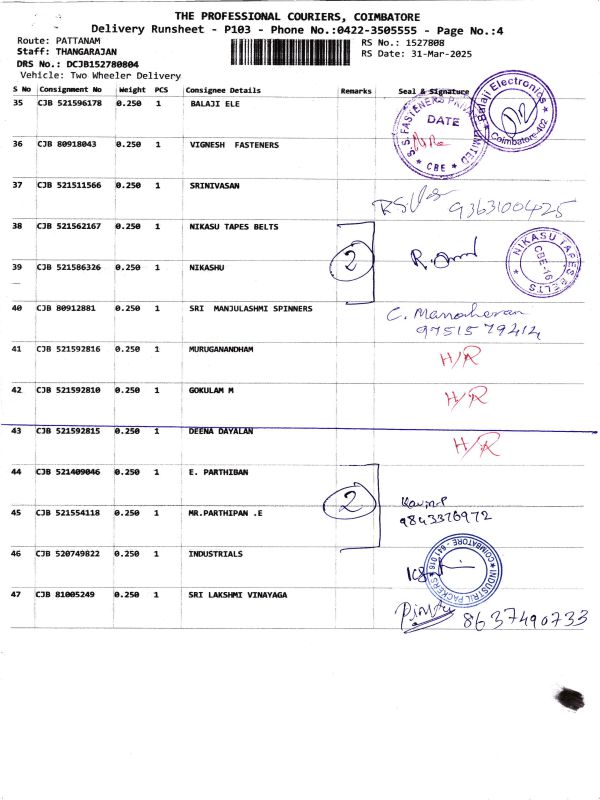 THE PROFESSIONAL COURIERS, COIMBATORE
Delivery Runsheet - P103 - Phone No.:0422-3505555 - Page No.:4
Route: PATTANAM
RS No.: 1527808
Staff: THANGARAJAN
RS Date: 31-Mar-2025
DRS No.: DCJB152780804
Vehicle: Two Wheeler Delivery
S No Consignment No Weight PCS Consignee Details Remarks Seal & Signature
35 CJB 521596178 0.250 1 BALAJI ELE
Balaji Electronics
Coimbatore-402
S. S. FASTENERS PRIVATE LIMITED
DATE
* CBE *
36 CJB 80918043 0.250 1 VIGNESH FASTENERS
37 CJB 521511566 0.250 1 SRINIVASAN
9363100425
38 CJB 521562167 0.250 1 NIKASU TAPES BELTS
2
NIKASU TAPES BELTS
CBE-16
39 CJB 521586326 0.250 1 NIKASHU
40 CJB 80912881 0.250 1 SRI MANJULASHMI SPINNERS
C. Manoharan
9751579414
41 CJB 521592816 0.250 1 MURUGANANDHAM H/R
42 CJB 521592810 0.250 1 GOKULAM M H/R
43 CJB 521592815 0.250 1 DEENA DAYALAN H/R
44 CJB 521409046 0.250 1 E. PARTHIBAN
2
45 CJB 521554118 0.250 1 MR.PARTHIPAN .E
9843376972
46 CJB 520749822 0.250 1 INDUSTRIALS
INDUSTRIL PACKERS
COIMBATORE - 641 016
47 CJB 81005249 0.250 1 SRI LAKSHMI VINAYAGA
8637490733